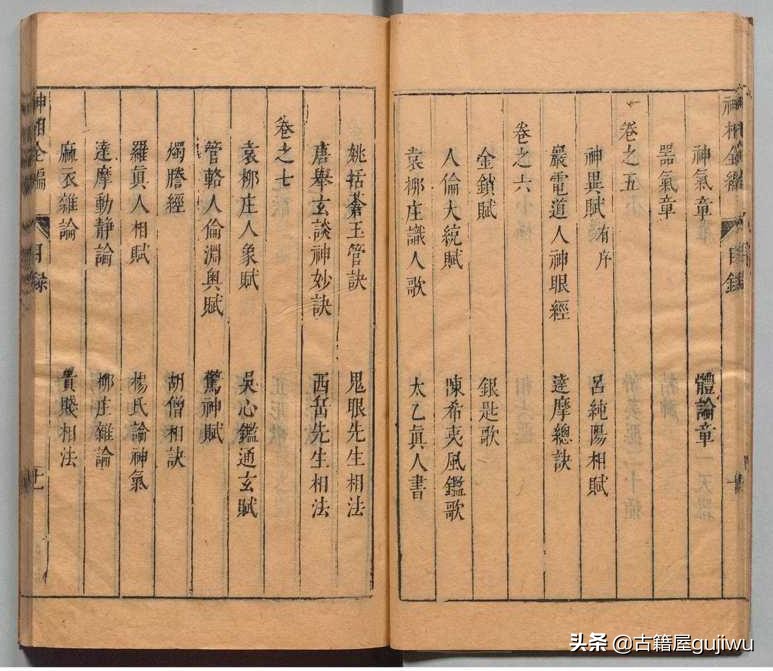 神相全編 目錄
神氣章 體論章
器氣章
卷之五
神異賦 有序 呂純陽相賦
巖電道人神眼經 達摩總訣
卷之六
金鎖賦 銀匙歌
人倫大統賦 陳希夷風鑑歌
袁柳庄識人歌 太乙眞人書
姚括蒼玉管訣 鬼眼先生相法
唐舉玄談神妙訣 西岳先生相法
卷之七
袁柳庄人象賦 吳心鑑通玄賦
管輅人倫淵奧賦 驚神賦
燭膽經 胡僧相訣
羅眞人相賦 楊氏論神氣
達摩動靜論 柳庄雜論
麻衣雜論 貴賤相法
神相全編 目錄 十一
头条 @古籍屋gujiwu